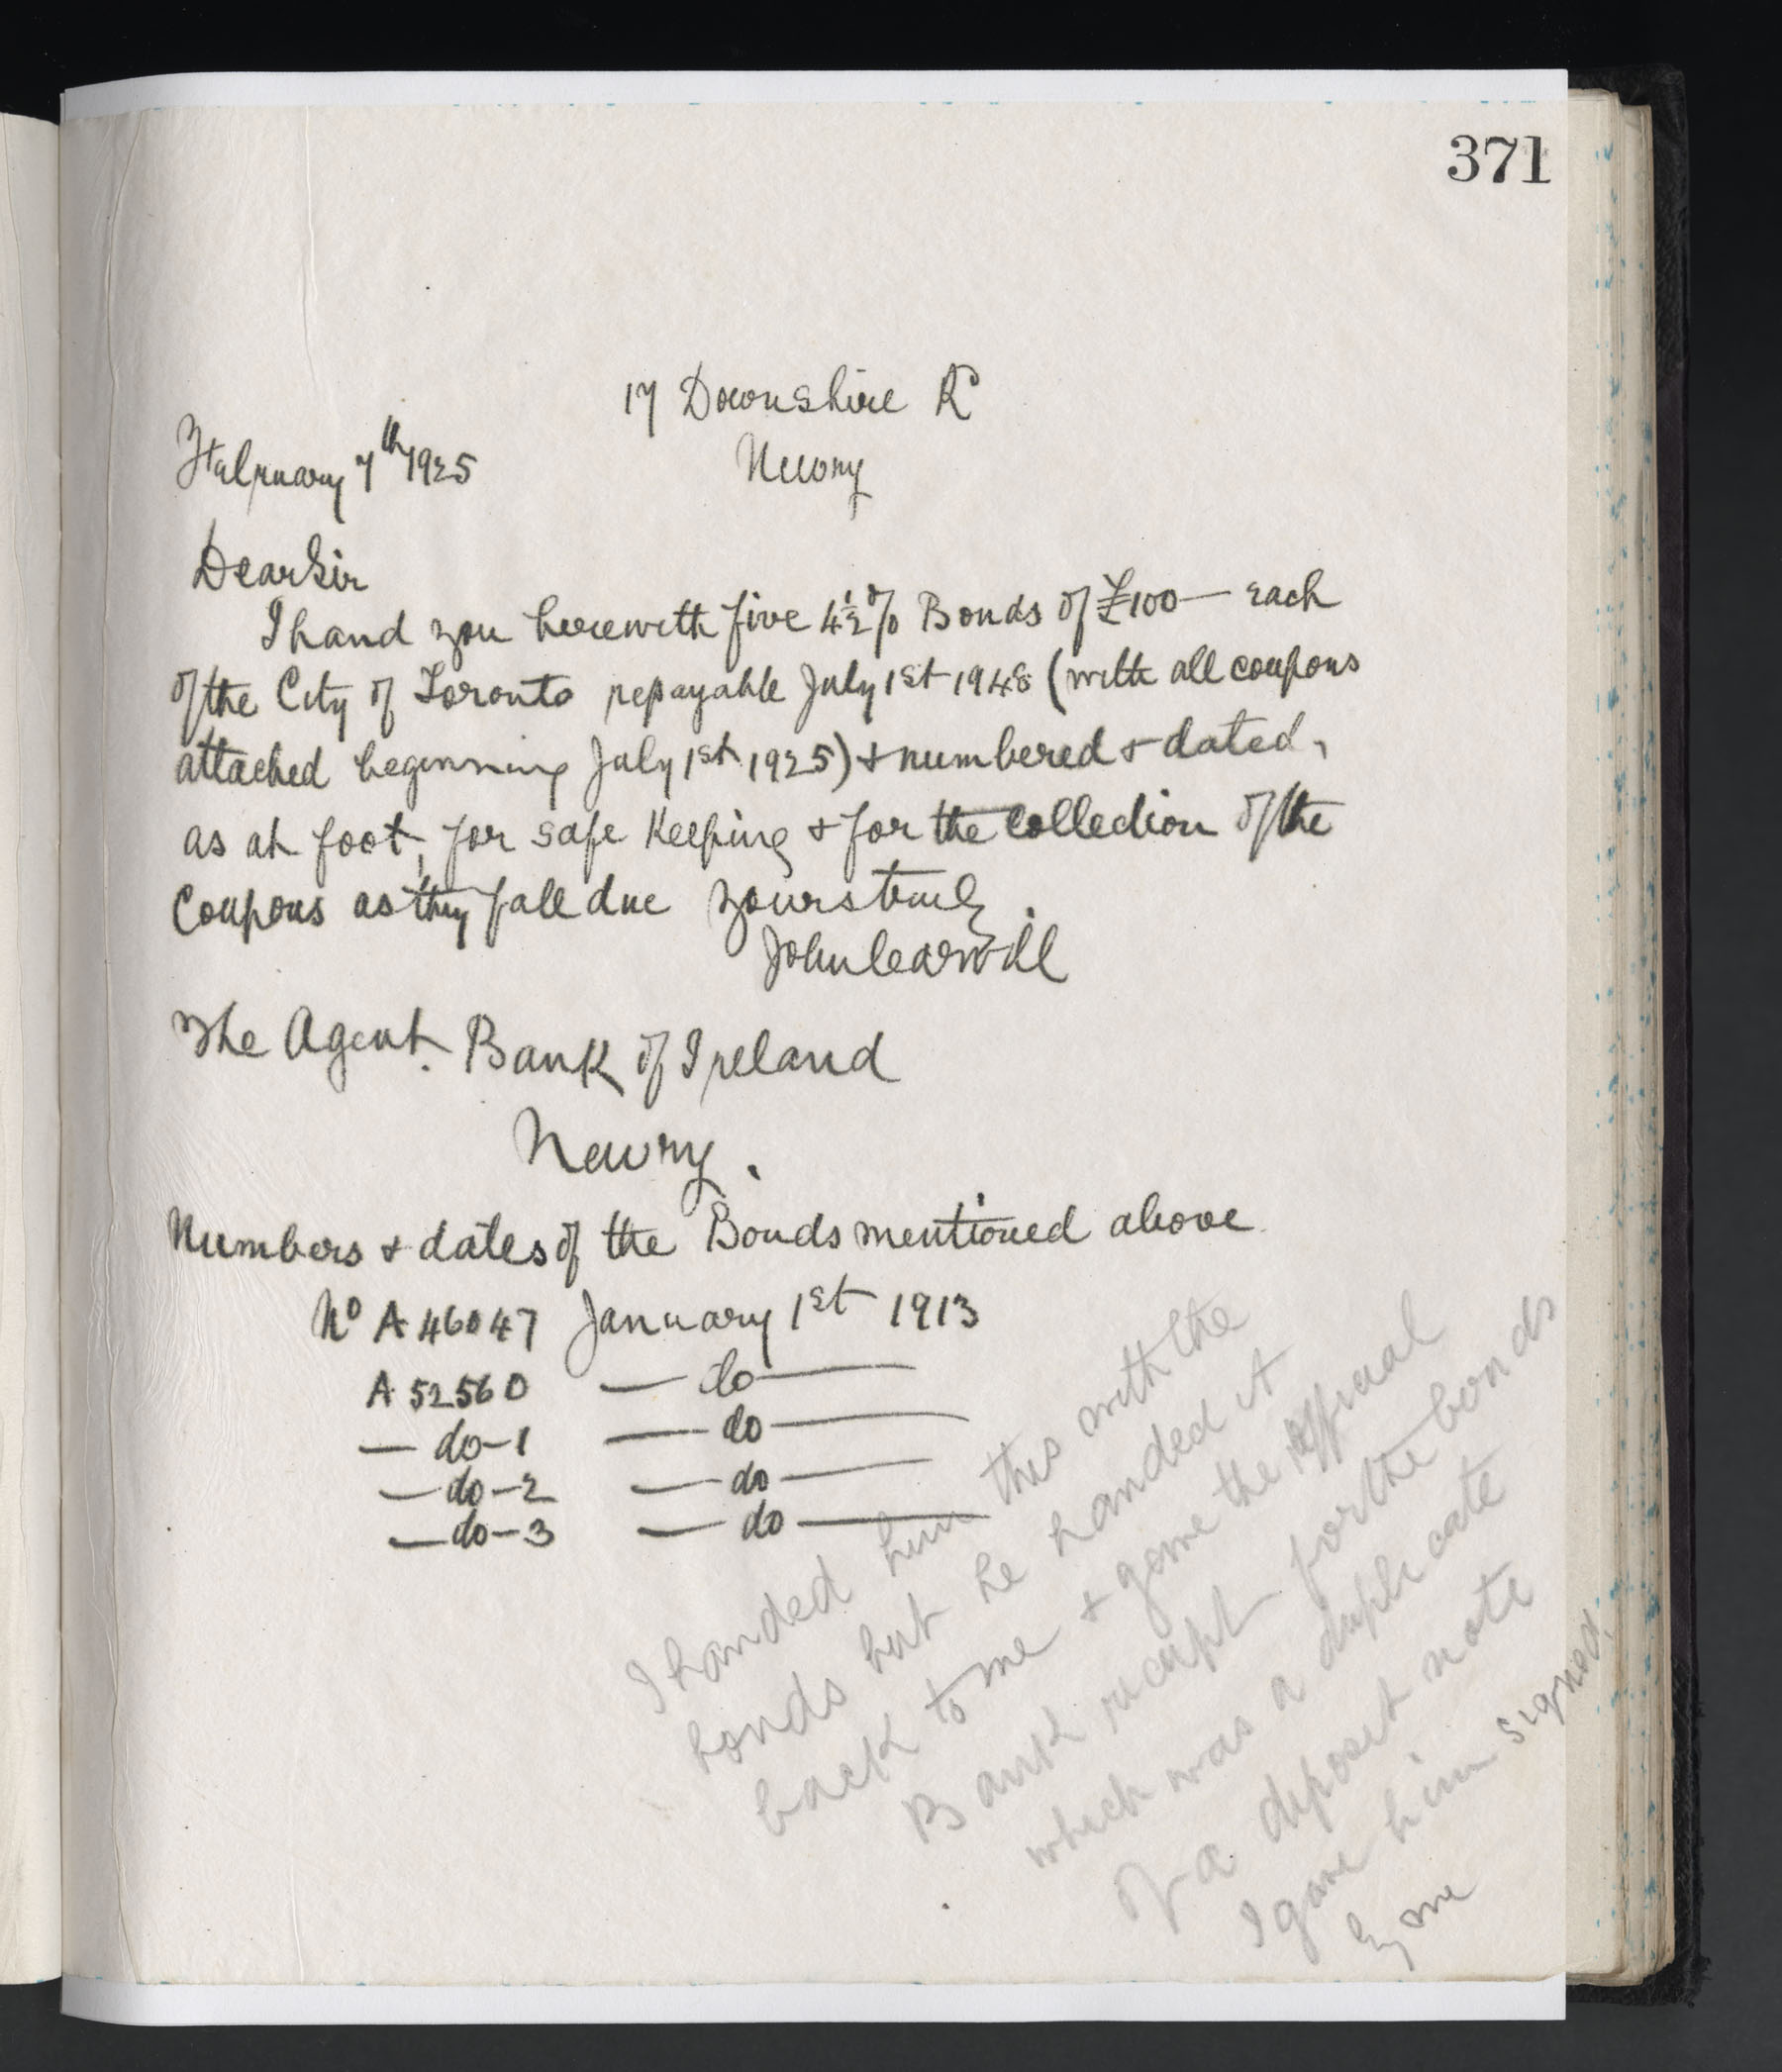 371
17 Downshire Rd
February 7th 1925
Newry
Dear Sir
I hand you herewith five 4½% Bonds of £100— each
of the City of Toronto repayable July 1st 1948 (with all coupons
attached beginning July 1st 1925) & numbered & dated,
as at foot, for safe keeping & for the collection of the
Coupons as they fall due yours truly.
John Carvill
The Agent. Bank of Ireland
Newry.
Numbers & dates of the Bonds mentioned above
No A 46047 January 1st 1913
A 52560 — do —
— do — 1 — do —
— do — 2 — do —
— do — 3 — do —
I handed him this with the
bonds but he handed it
back to me & gave the official
Bank receipt for the bonds
which was a duplicate
of a deposit note
I gave him signed.
by me